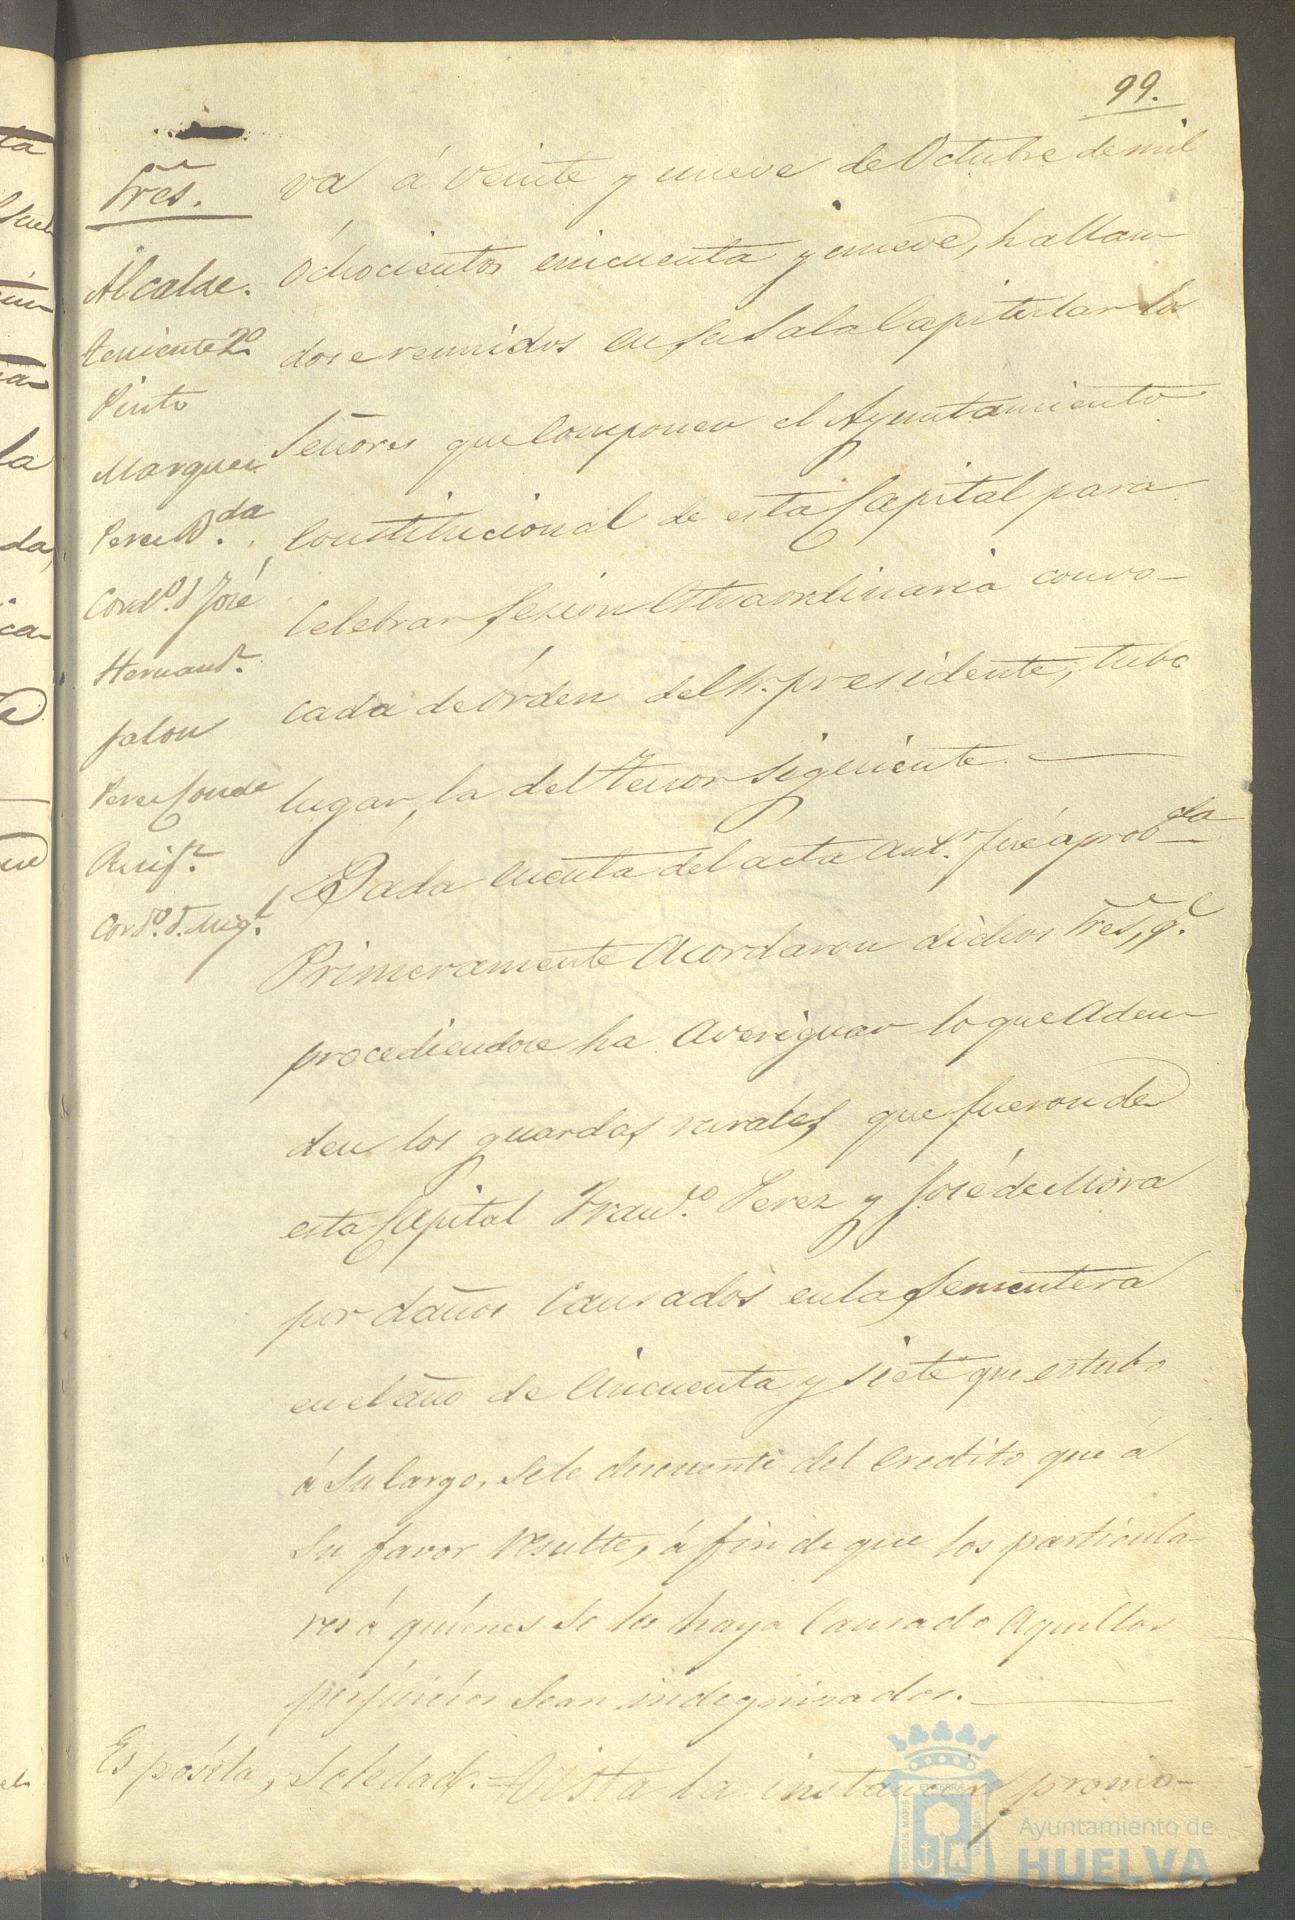 99.
Sres.
Alcalde.
Teniente 2º
Pinto
Marquez
Perez B.da
Cord.º D. José
Hernand.z
Jalon
Perez Conde
Cord.º D. Mig.l
va á veinte y nueve de Octubre de mil
Ochocientos cincuenta y nueve, hallan
dose reunidos en su Sala Capitular lo
Señores que Componen el Ayuntamiento
Constitucional de esta Capital para
Celebrar Sesion Estraordinaria convo-
cada de Órden del Sr. presidente, tubo
lugar, la del tenor siguiente.
Dada Cuenta del acta ant.r fué aprob.da
Primeramente Acordaron dichos Sres, q.e
procediendose ha Averiguar lo que Adeu
den los guardas rurales que fueron de
esta Capital Fran.co Perez y José de Mora
por daños Causados en la Sementera
en el año de Cincuenta y siete que estubo
á Su Cargo, Se le descuente del Credito que á
Su favor resulte, á fin de que los particula
res á quienes se les haya Causado Aquellos
perjuicios Sean indegnizados.
Espósita, Soledad. Vista la instancia promo-
Ayuntamiento de
HUELVA